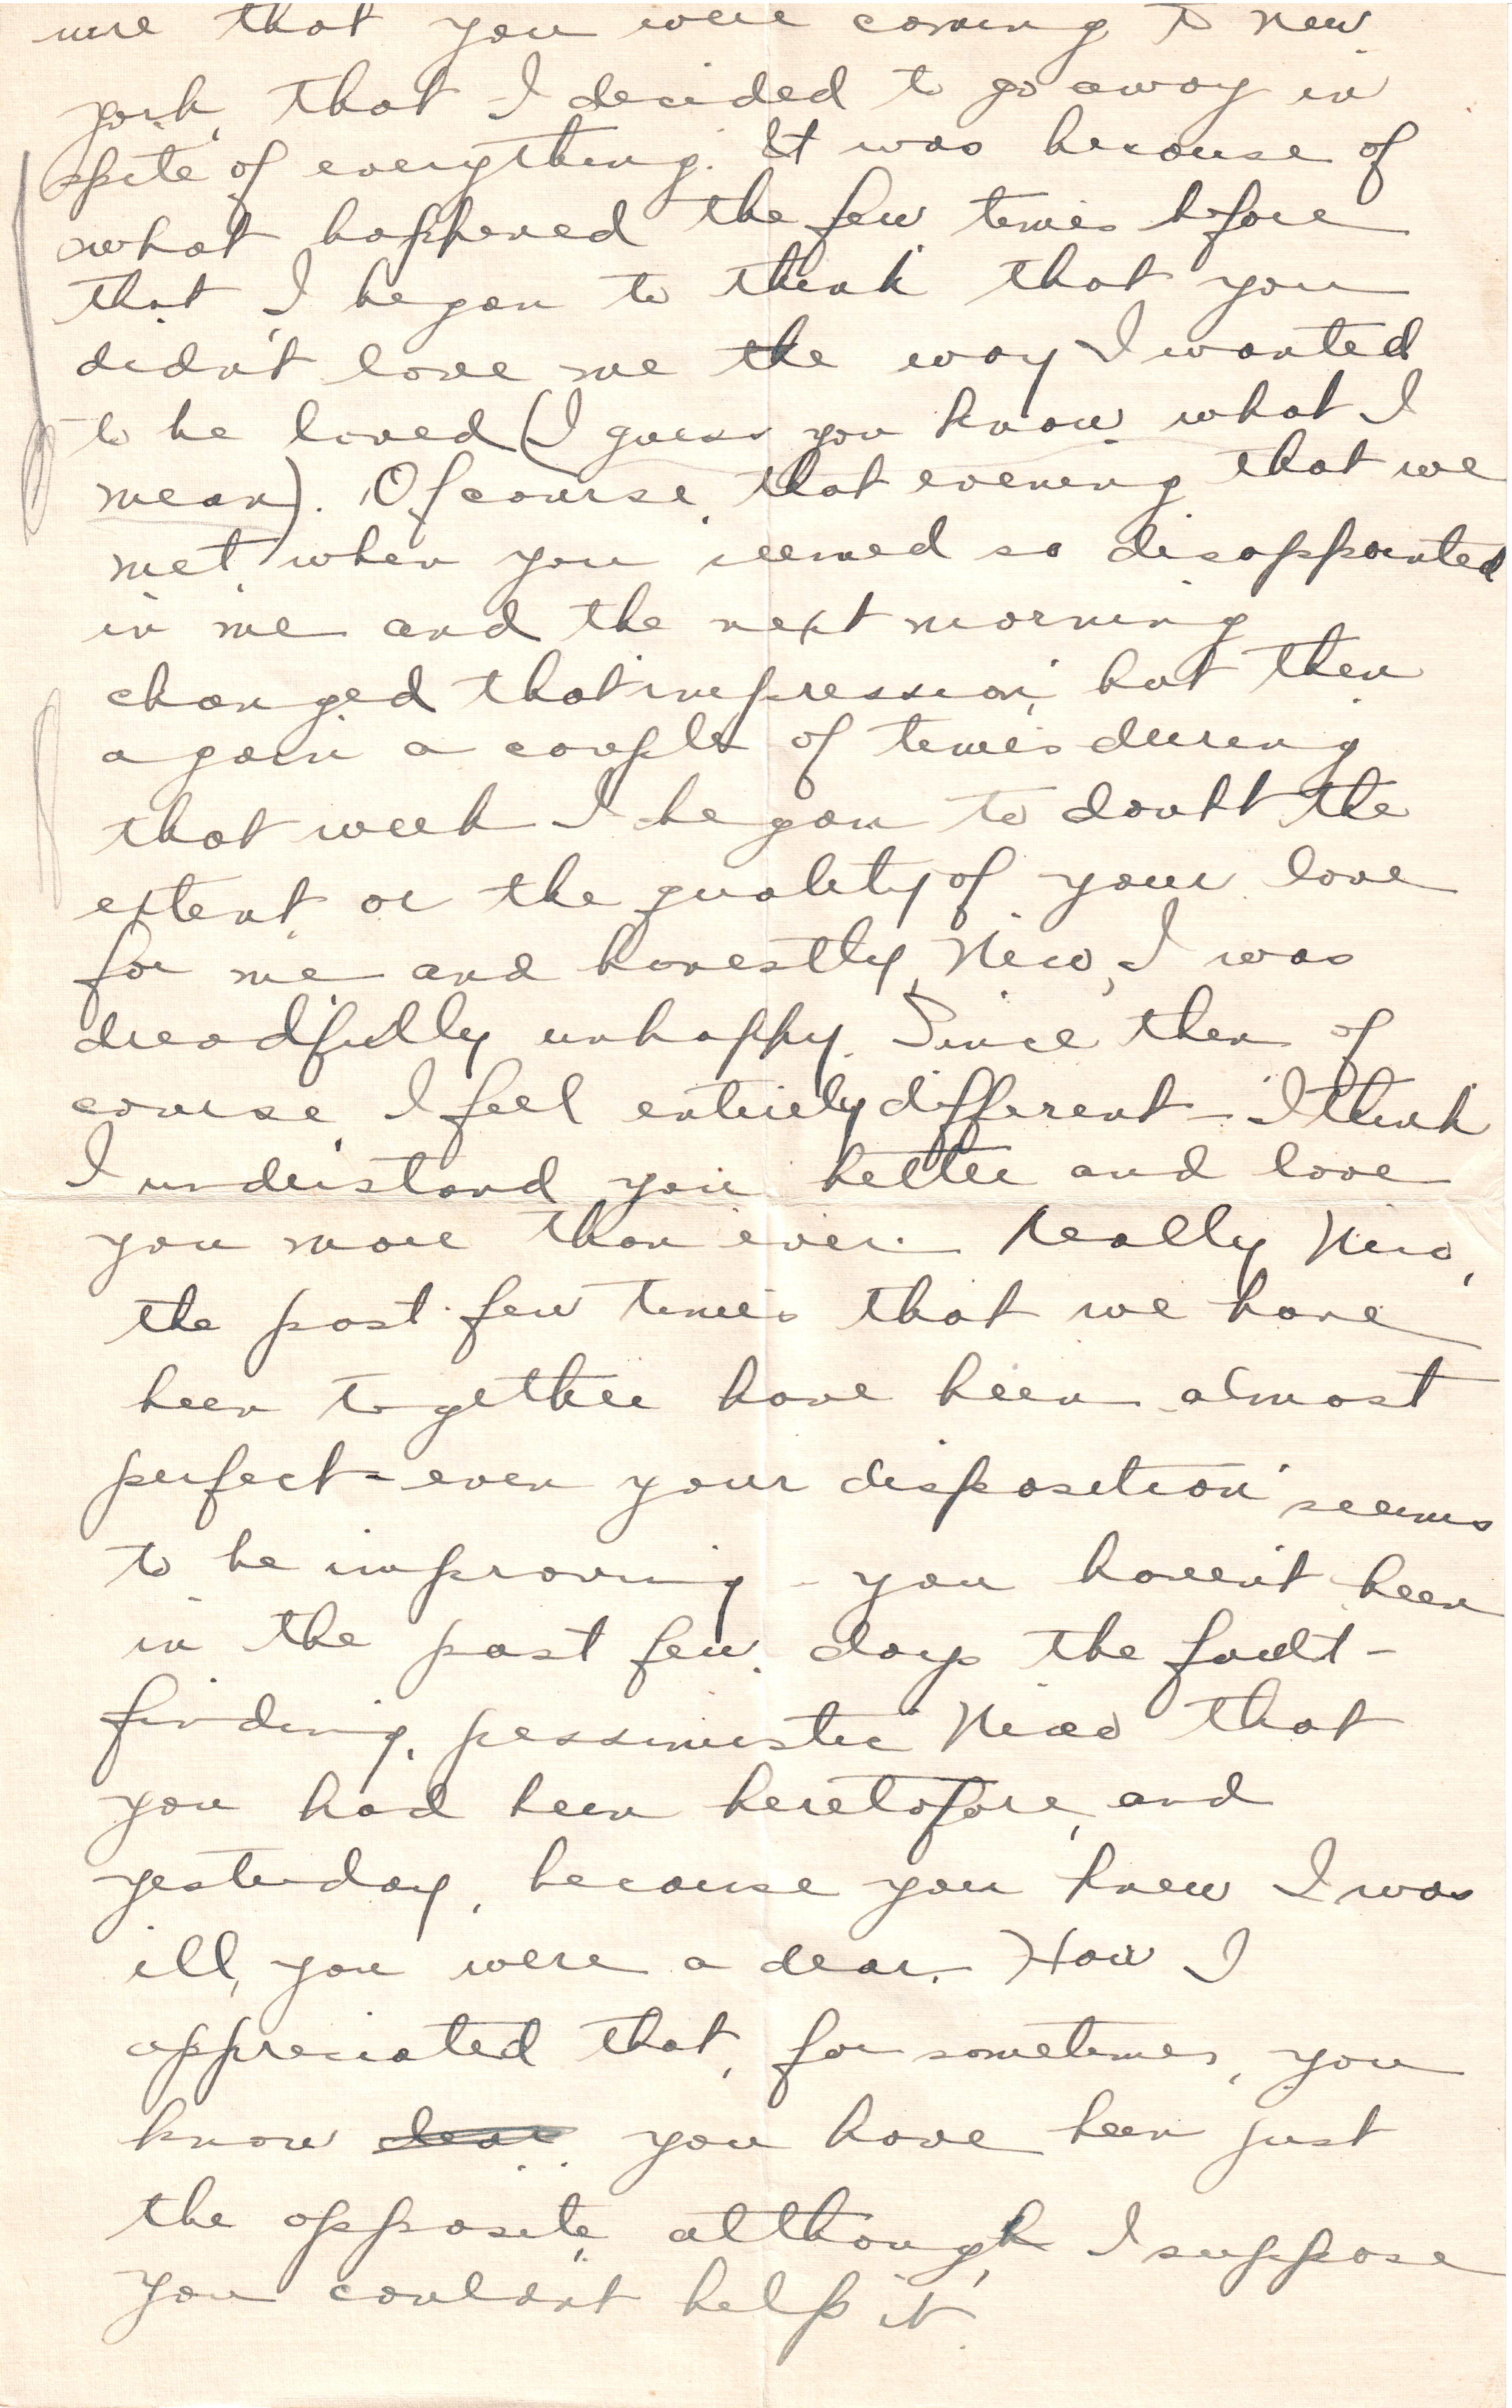 me that you were coming to New
York, that I decided to go away in
spite of everything. It was because of
what happened the few times before
that, I began to think that you
didn't love me the way I wanted
to be loved (I guess you know what I
mean). Of course, that evening that we
met, when you seemed so disappointed
in me and the next morning
changed that impression, but then
again a couple of times during
that week I began to doubt the
extent or the quality of your love
for me and honestly, Nino, I was
dreadfully unhappy. Since then of
course, I feel entirely different - I think
I understand you better and love
you more than ever. Really Nino,
the past few times that we have
been together have been almost
perfect - even your disposition seems
to be improving - you haven't been
in the past few days the fault-
finding, pessimistic Nino that
you had been heretofore, and
yesterday, because you knew I was
ill, you were a dear. How I
appreciated that, for sometimes, you
know dear you have been just
the opposite, although, I suppose
you couldn't help it.